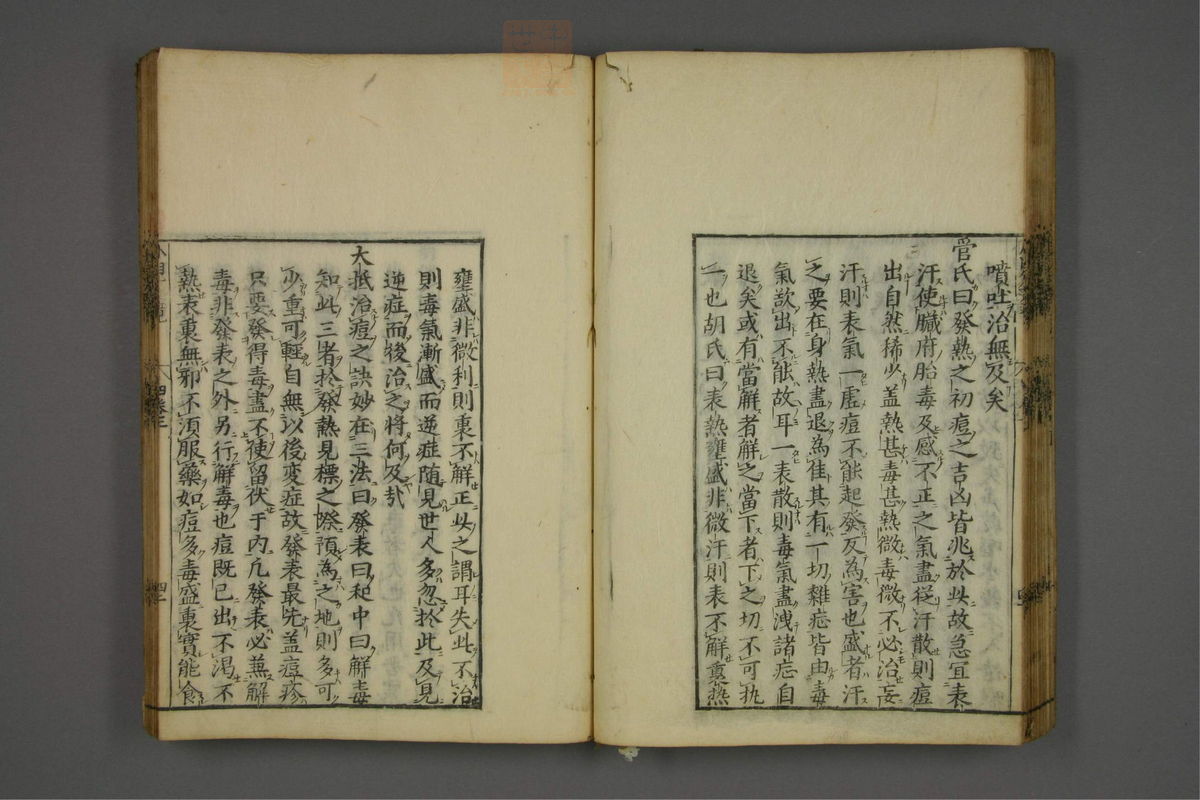 噴吐治無及矣
管氏曰發熱之初痘之吉凶皆兆於此故急宜表
汗使臟府胎毒及感不正之氣盡従汗散則痘
出自然稀少盖熱甚毒甚熱微毒微不必治妄
汗則表氣一虛痘不能起發反為害也盛者汗
之要在身熱盡退為佳其有一切雜症皆由毒
氣欲出不能故耳一表散則毒氣盡洩諸症自
退矣或有當解者解之當下者下之切不可执
一也胡氏曰表熱壅盛非微汗則表不解裏熱
壅盛非微利則裏不解正此之謂耳失此不治
則毒氣漸盛而逆症随見世人多忽於此及見
逆症而後治之将何及㢤
大抵治痘之訣妙在三法曰發表曰和中曰解毒
知此三者於發熱見標之際預為之地則多可
少重可輕自無以後变症故發表最先盖痘疹
只要發得毒盡不使留伏于内凢發表必蕪解
毒非發表之外另行解毒也痘既已出不渴不
熱表裏無邪不湏服藥如痘多毒盛裏實能食